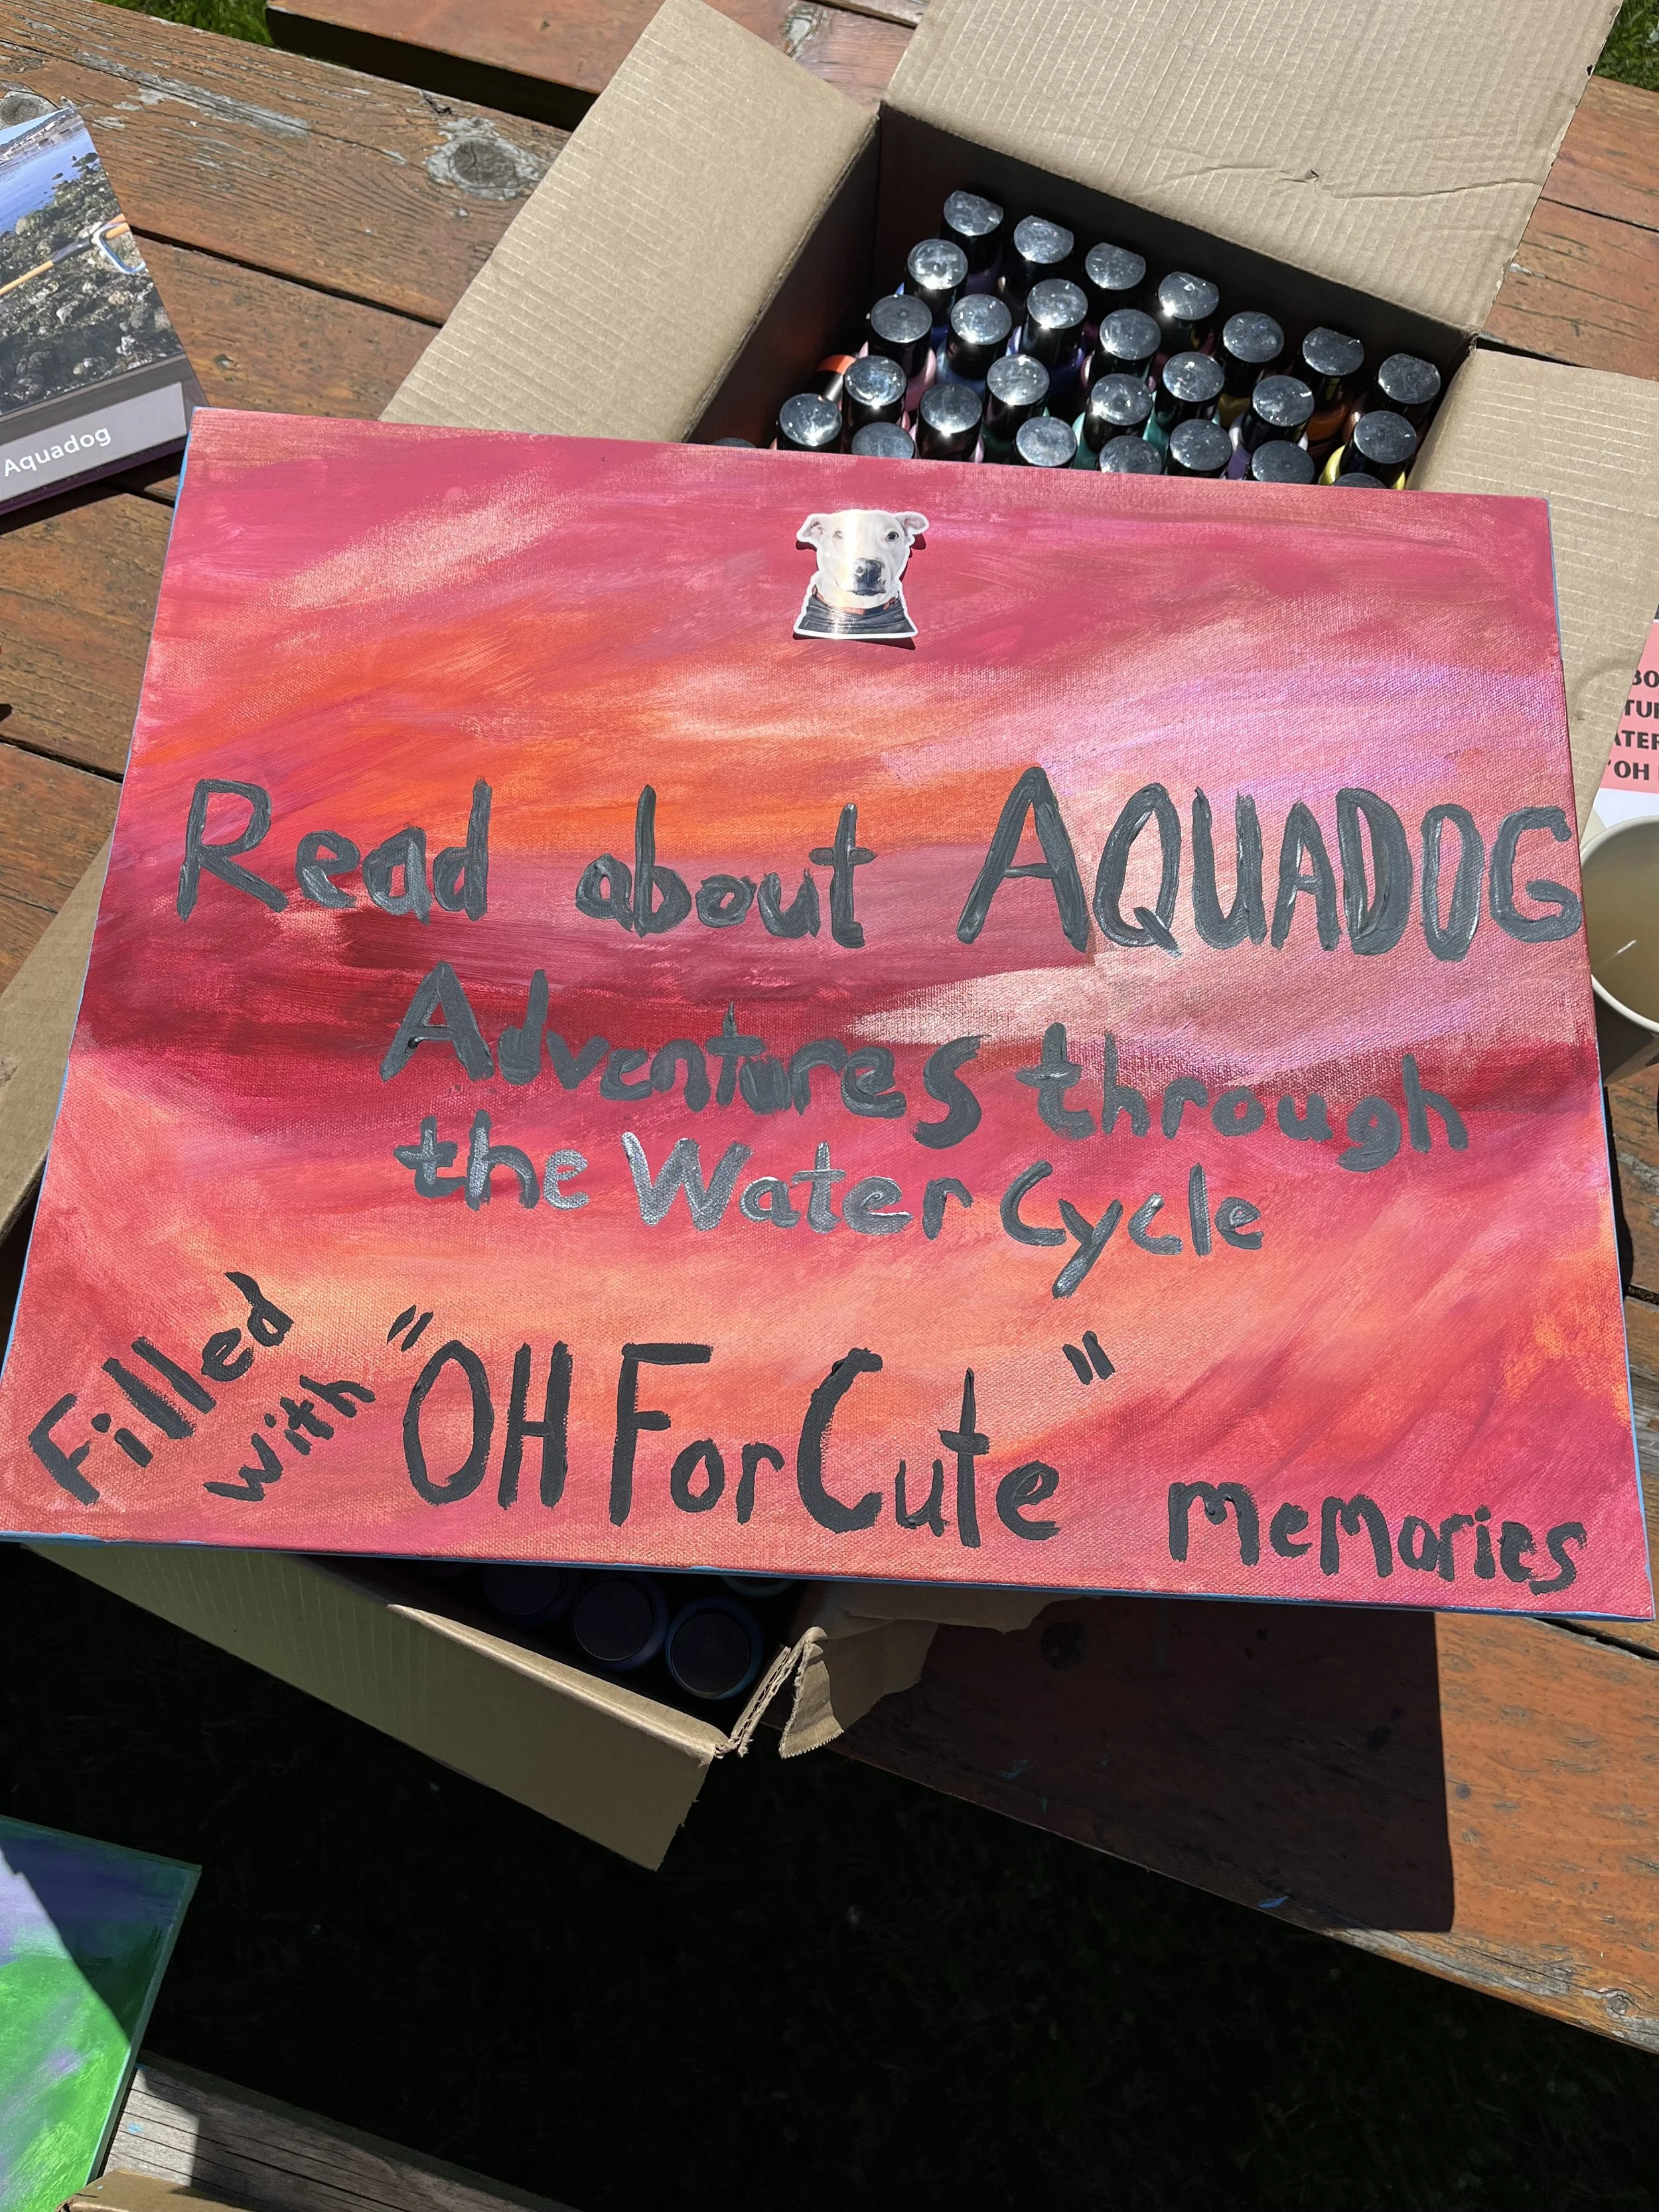 Aquadog
Read about AQUADOG
Adventures through
the Water Cycle
Filled
with "OH For Cute" memories
'OH